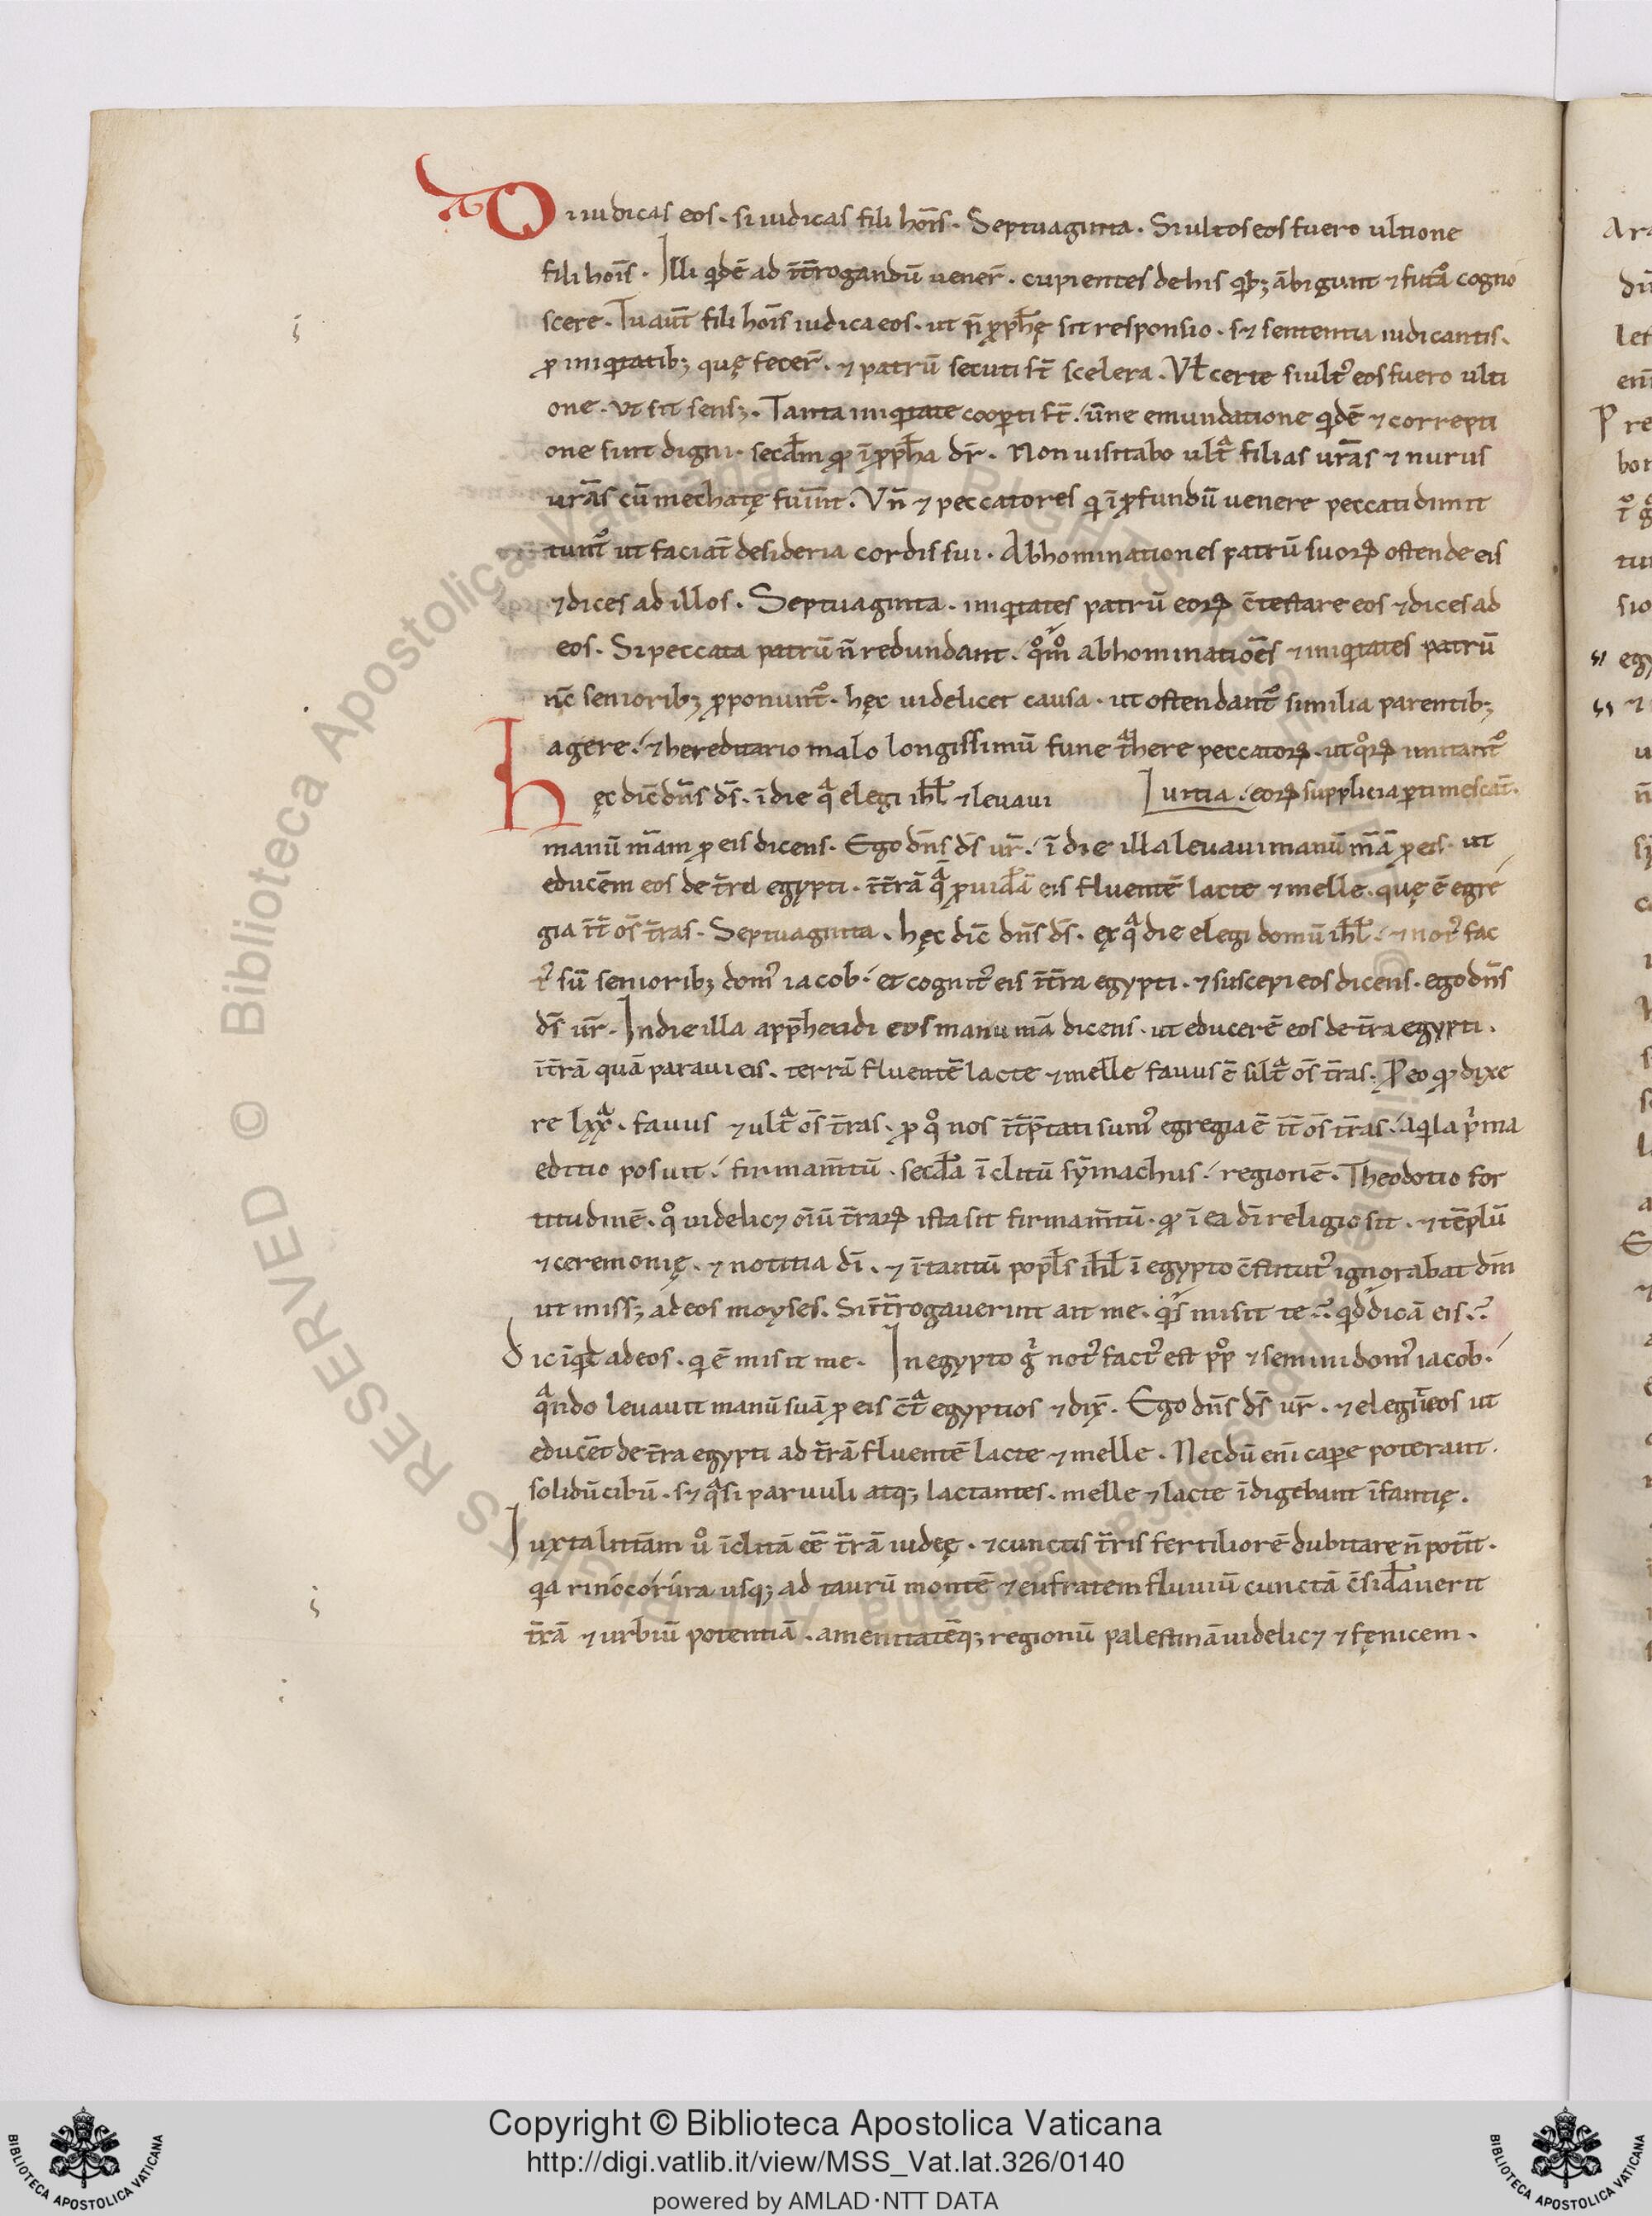 iudicas eos · si iudicas fili hoı̄s · Septuaginta · Si ultos eos fuero ultione
fili hoı̄s · Illi q̇dē ad ı̄t̄rogandū uener̄ · cupientes de his q̇b; ābigunt ⁊ futͣa cogno
scere · Tu aut̄ fili hoı̄s iudica eos · ut n̄ ꝓph̄ę sit responsio · s⁊ sententia iudicantis ·
ꝓ iniq̇tatib; quę fecer̄ · ⁊ patrū secuti st̄ scelera · Vl̄ certe si ult᾽ eos fuero ulti
one · ut sit sens; · Tanta iniq̇tate coop̱ti st̄ · ut n̄ne emundatione q̇dē ⁊ correpti
one sint digni · secd̄m ꝙ ı̄ ꝓph̄a dr̄ · Non uisitabo ult̄ͣ filias ur̄as ⁊ nurus
ur̄as cū mechatę fuı̄nt · Vn̄ ⁊ peccatores q̇ ı̄ ꝓfundū uenere peccati dimit
tunt᾽ ut faciāt desideria cordis sui · Abhominationes patrū suoꝝ ostende eis
⁊ dices ad illos · Septuaginta · iniq̇tates patrū eoꝝ c̄testare eos ⁊ dices ad
eos · Si peccata patrū n̄ redundant · qͦmͦ abhominatiōes ⁊ iniq̇tates patrū
nc̄ seniorib; ꝓponunt᾽ · hęc uidelicet causa · ut ostendant᾽ similia parentib;
agere · ⁊ hereditario malo longissimū fune tͣhere peccatoꝝ · ut qͦꝝ imitant᾽
ęc dic̄ dn̄s ds̄ · ı̄ die qͣ elegi ih̄l ⁊ leuaui uitia · eoꝝ supplicia p̱timescāt ·
manū m̄am ꝓ eis dicens · Ego dn̄s ds̄ ur̄ · ı̄ die illa leuaui manū m̄ā ꝓ eis · ut
educēm eos de t̄ra egypti · ı̄ t̄rā qͣ̄ ꝓuid̄ā eis fluentē lacte ⁊ melle · quę ē egre
gia ı̄t̄ os̄ t̄ras · Septuaginta · hęc dic̄ dn̄s ds̄ · ex qͣ die elegi domū ih̄l · ⁊ not᾽ fac
t᾽ sū seniorib; dom᾽ iacob · et cognit᾽ eis ı̄ t̄ra egypti · ⁊ suscepi eos dicens · ego dn̄s
ds̄ ur̄ · In die illa app̄hendi eos manu mā dicens · ut educerē eos de t̄ra egypti ·
ı̄ t̄rā quā paraui eis · terrā fluentē lacte ⁊ melle fauus ē ult̄ͣ os̄ t̄ras · P eo ꝙ dixe
re lxxͣ · fauus ⁊ ult̄ͣ os̄ t̄ras · ꝓ qͦ nos ı̄t̄p̄tati sum᾽ egregia ē ı̄t̄ os̄ t̄ras · aq̇la p̍ma
editio posuit · firmam̄tū · secd̄a ı̄clitū sȳmachus · regionē · Theodotio for
titudinē · qͦ uidelic⁊ oı̄ū t̄raꝝ ista sit firmam̄tū · ꝙ ı̄ ea dı̄ religio sit · ⁊ tēplū
⁊ ceremonię · ⁊ notitia dı̄ · ⁊ ı̄ tantū popl̄s ih̄l ı̄ egypto c̄stitut᾽ ignorabat dm̄
ut miss; ad eos moyses · Si ı̄t̄rogauerint ait me · q̇s misit te · q̇d dicā eis ·
Dic ı̄q̇t ad eos · q̇ ē misit me · In egypto g̍ not᾽ fact᾽ est pp̄ ⁊ semini dom᾽ iacob ·
qͣndo leuauit manū suā ꝓ eis c̄tͣ egyptios ⁊ dix̄ · Ego dn̄s ds̄ ur̄ · ⁊ elegit eos ut
educēt de t̄ra egypti ad t̄rā fluentē lacte ⁊ melle · Necdū enı̄ cap̱e poterant ·
solidū cibū · s⁊ qͣsi paruuli atq; lactantes · melle ⁊ lacte ı̄digebant ı̄fantię ·
Iuxta litt̄am uͦ ı̄clitā eē t̄rā iudeę · ⁊ cunctis t̄ris fertiliorē dubitare n̄ pot̄it ·
q̇ a rinocorura usq; ad taurū montē ⁊ eufratem fluuiū cunctā c̄sid̄auerit
t̄rā ⁊ urbiū potentiā · amenitatēq; regionū palestinā uidelic⁊ ⁊ fęnicem ·
Copyright © Biblioteca Apostolica Vaticana
http://digi.vatlib.it/view/MSS_Vat.lat.326/0140
powered by AMLAD·NTT DATA